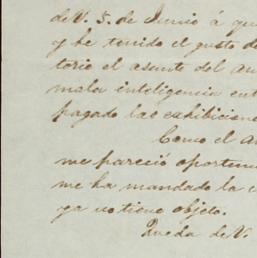 de V. 5. de Junio á qu
y he tenido el gusto de
torio el asunto del an
mala inteligencia ent
pagado las exhibicione
Como el a
me pareció oportun
me ha mandado la c
ya no tiene objeto.
Queda de V.